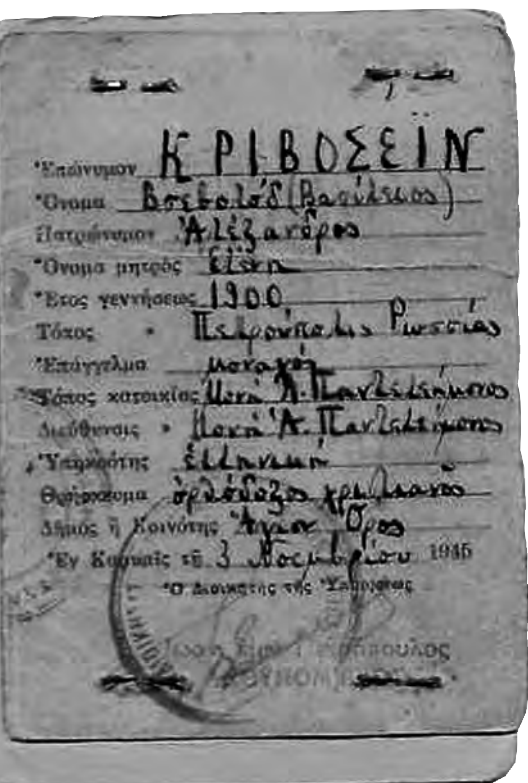 Ἐπώνυμον ΚΡΙΒΟΣΕΪΝ
Ὄνομα Βσεβολόδ (Βασίλειος)
Πατρώνυμον Ἀλέξανδρος
Ὄνομα μητρὸς Ἑλένη
Ἔτος γεννήσεως 1900
Τόπος » Πετρούπολις Ρωσσίας
Ἐπάγγελμα μοναχός
Τόπος κατοικίας Μονή Ἁ. Παντελεήμονος
Διεύθυνσις » Μονή Ἁ. Παντελεήμονος
Ὑπηκοότης ἑλληνική
Θρήσκευμα ὀρθόδοξος χριστιανός
Δῆμος ἢ Κοινότης Ἅγιον Ὄρος
Ἐν Καρυαῖς τῇ 3 Νοεμβρίου 1945
Ὁ Διοικητὴς τῆς Ὑποδ/σεως